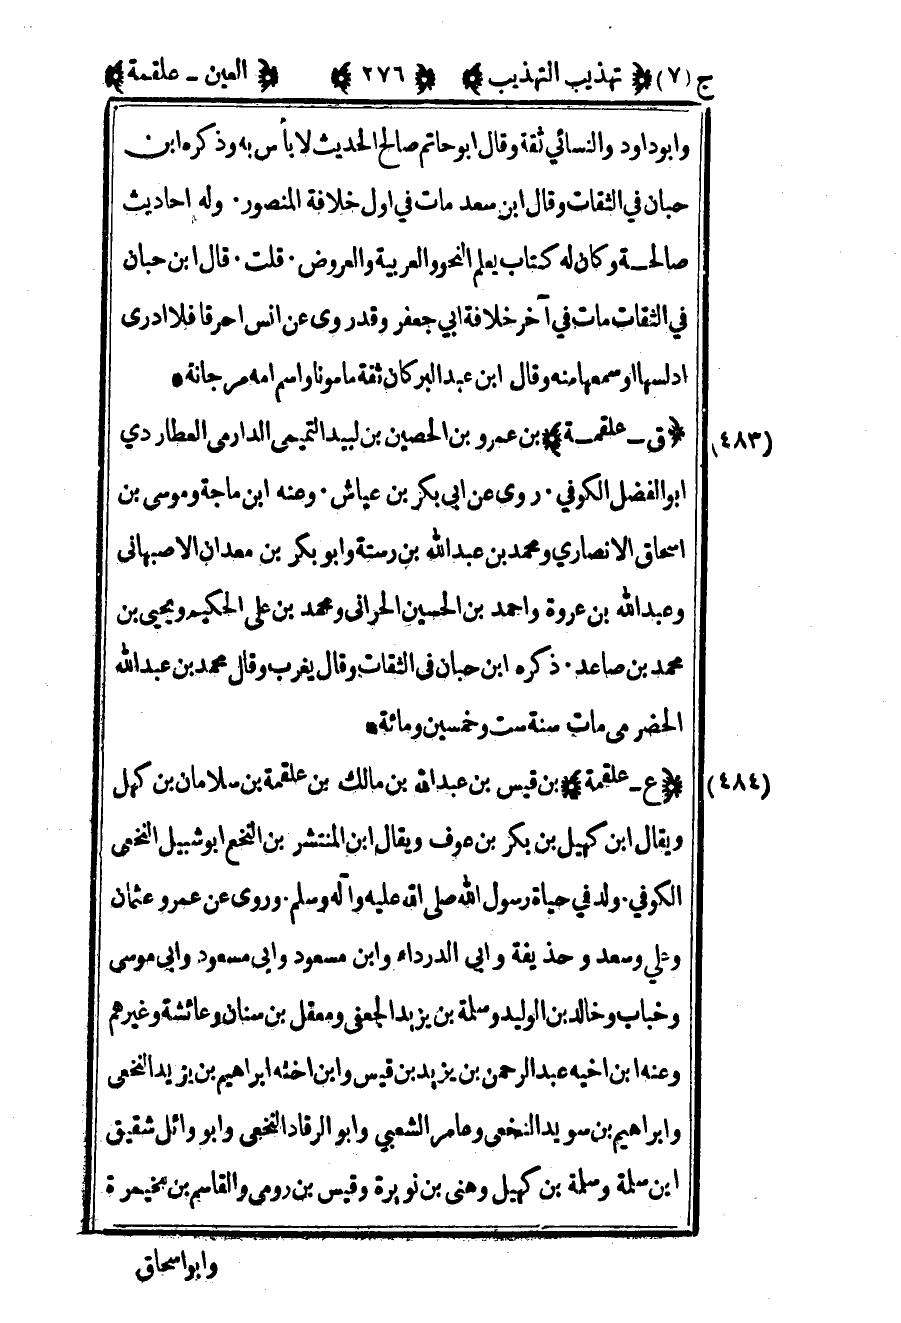 ج (٧) ﴿ تهذيب التهذيب ﴾ ﴿ ٢٧٦ ﴾ ﴿ العين - علقمة ﴾
وابوداود والنسائي ثقة وقال ابوحاتم صالح الحديث لا بأس به وذكره ابن
حبان في الثقات وقال ابن سعد مات في اول خلافة المنصور · وله احاديث
صالحـة وكان له كتاب يعلم النحو والعربية والعروض · قلت · قال ابن حبان
في الثقات مات في آخر خلافة ابي جعفر وقد روى عن انس احرفا فلا ادرى
ادلسها او سمعها منه وقال ابن عبدالبر كان ثقة مامونا واسم امه مرجانة •
(٤٨٣) ﴿ ق - علقمـة ﴾ بن عمرو بن الحصين بن لبيد التميمى الدارمى العطاردي
ابوالفضل الكوفي · روى عن ابي بكر بن عياش · وعنه ابن ماجة وموسى بن
اسحاق الانصاري ومحمد بن عبدالله بن رستة وابو بكر بن معدان الاصبهانى
وعبدالله بن عروة واحمد بن الحسين الحرانى ومحمد بن على الحكيم ويحيى بن
محمد بن صاعد · ذكره ابن حبان فى الثقات وقال يغرب وقال محمد بن عبدالله
الحضرمى مات سنة ست وخمسين ومائة •
(٤٨٤) ﴿ ع - علقمة ﴾ بن قيس بن عبدالله بن مالك بن علقمة بن سلامان بن كهل
ويقال ابن كهيل بن بكر بن عوف ويقال ابن المنتشر بن النخع ابو شبيل النخعى
الكوفي · ولد في حياة رسول الله صلى الله عليه وآله وسلم · وروى عن عمر و عثمان
وعلي وسعد و حذيفة و ابي الدرداء وابن مسعود وابى مسعود وابى موسى
وخباب وخالد بن الوليد وسلمة بن يزيد الجعفى ومعقل بن سنان وعائشة وغيرهم
وعنه ابن اخيه عبدالرحمن بن يزيد بن قيس وابن اخته ابراهيم بن يزيد النخعى
وابراهيم بن سويد النخعى وعامر الشعبي وابو الرقاد النخعى وابو وائل شقيق
ابن سلمة وسلمة بن كهيل وهنى بن نويرة وقيس بن رومى والقاسم بن مخيمرة
وابواسحاق